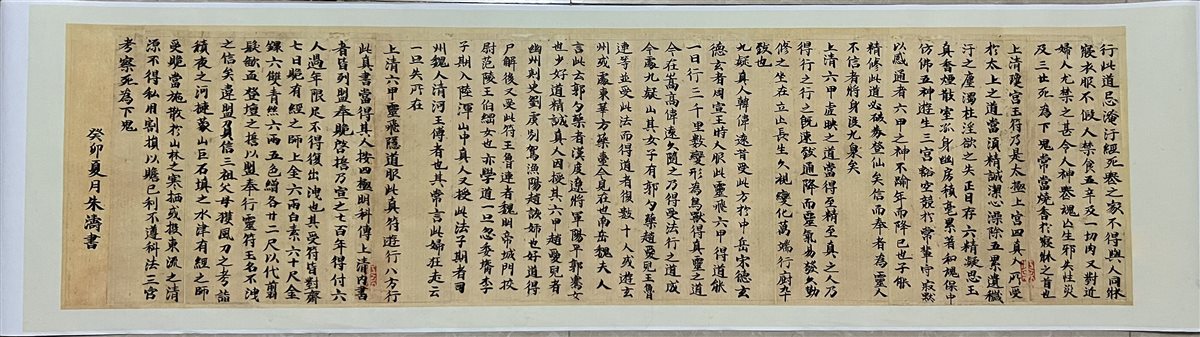 行此道忌淹汙經死喪之家不得與人同牀
寢衣服不假人禁食五辛及一切肉又對近
婦人尤禁之甚令人神喪魂亡生邪失性災
及三世死為下鬼常當燒香於寢牀之首也
上清瓊宮玉符乃是太極上宮四真人所受
於太上之道當須精誠潔心澡除五累遺穢
汙之塵濁杜淫欲之失正目存六精凝思玉
真香煙散室孤身幽房積毫累著和魂保中
仿佛五神遊生三宮豁空競於常輩守寂默
以感通者六甲之神不踰年而降已也子能
精修此道必破券登仙矣信而奉者為靈人
不信者將身沒九泉矣
上清六甲虛映之道當得至精至真之人乃
得行之行之既速致通降而靈氣易發久勤
修之坐在立亡長生久視變化萬端行廚卒
致也
九疑真人韓偉遠昔受此方於中岳宋德玄
德玄者周宣王時人服此靈飛六甲得道能
一日行三千里數變形為鳥獸得真靈之道
今在嵩高偉遠久隨之乃得受法行之道成
今處九疑山其女子有郭勺藥趙愛兒王魯
連等並受此法而得道者復數十人或遊玄
州或處東華方諸臺今見在也南岳魏夫人
言此云郭勺藥者漢度遼將軍陽平郭騫女
也少好道精誠真人因授其六甲趙愛兒者
幽州刺史劉虞別駕漁陽趙該姊也好道得
尸解後又受此符王魯連者魏明帝城門校
尉范陵王伯綱女也亦學道一旦忽委聟李
子期入陸渾山中真人又授此法子期者司
州魏人清河王傳者也其常言此婦狂走云
一旦失所在
上清六甲靈飛隱道服此真符遊行八方行
此真書當得其人按四極明科傳上清內書
者皆列盟奉貺啟誓乃宣之七百年得付六
人過年限足不得復出洩也其受符皆對齋
七日貺有經之師上金六兩白素六十尺金
鐶六雙青絲六兩五色繒各廿二尺以代翦
髮歃血登壇之誓以盟奉行靈符玉名不洩
之信矣違盟負信三祖父母獲風刀之考詣
積夜之河揵蒙山巨石填之水津有經之師
受貺當施散於山林之寒栖或投東流之清
源不得私用割損以贍己利不遵科法三宮
考察死為下鬼
癸卯夏月朱濤書